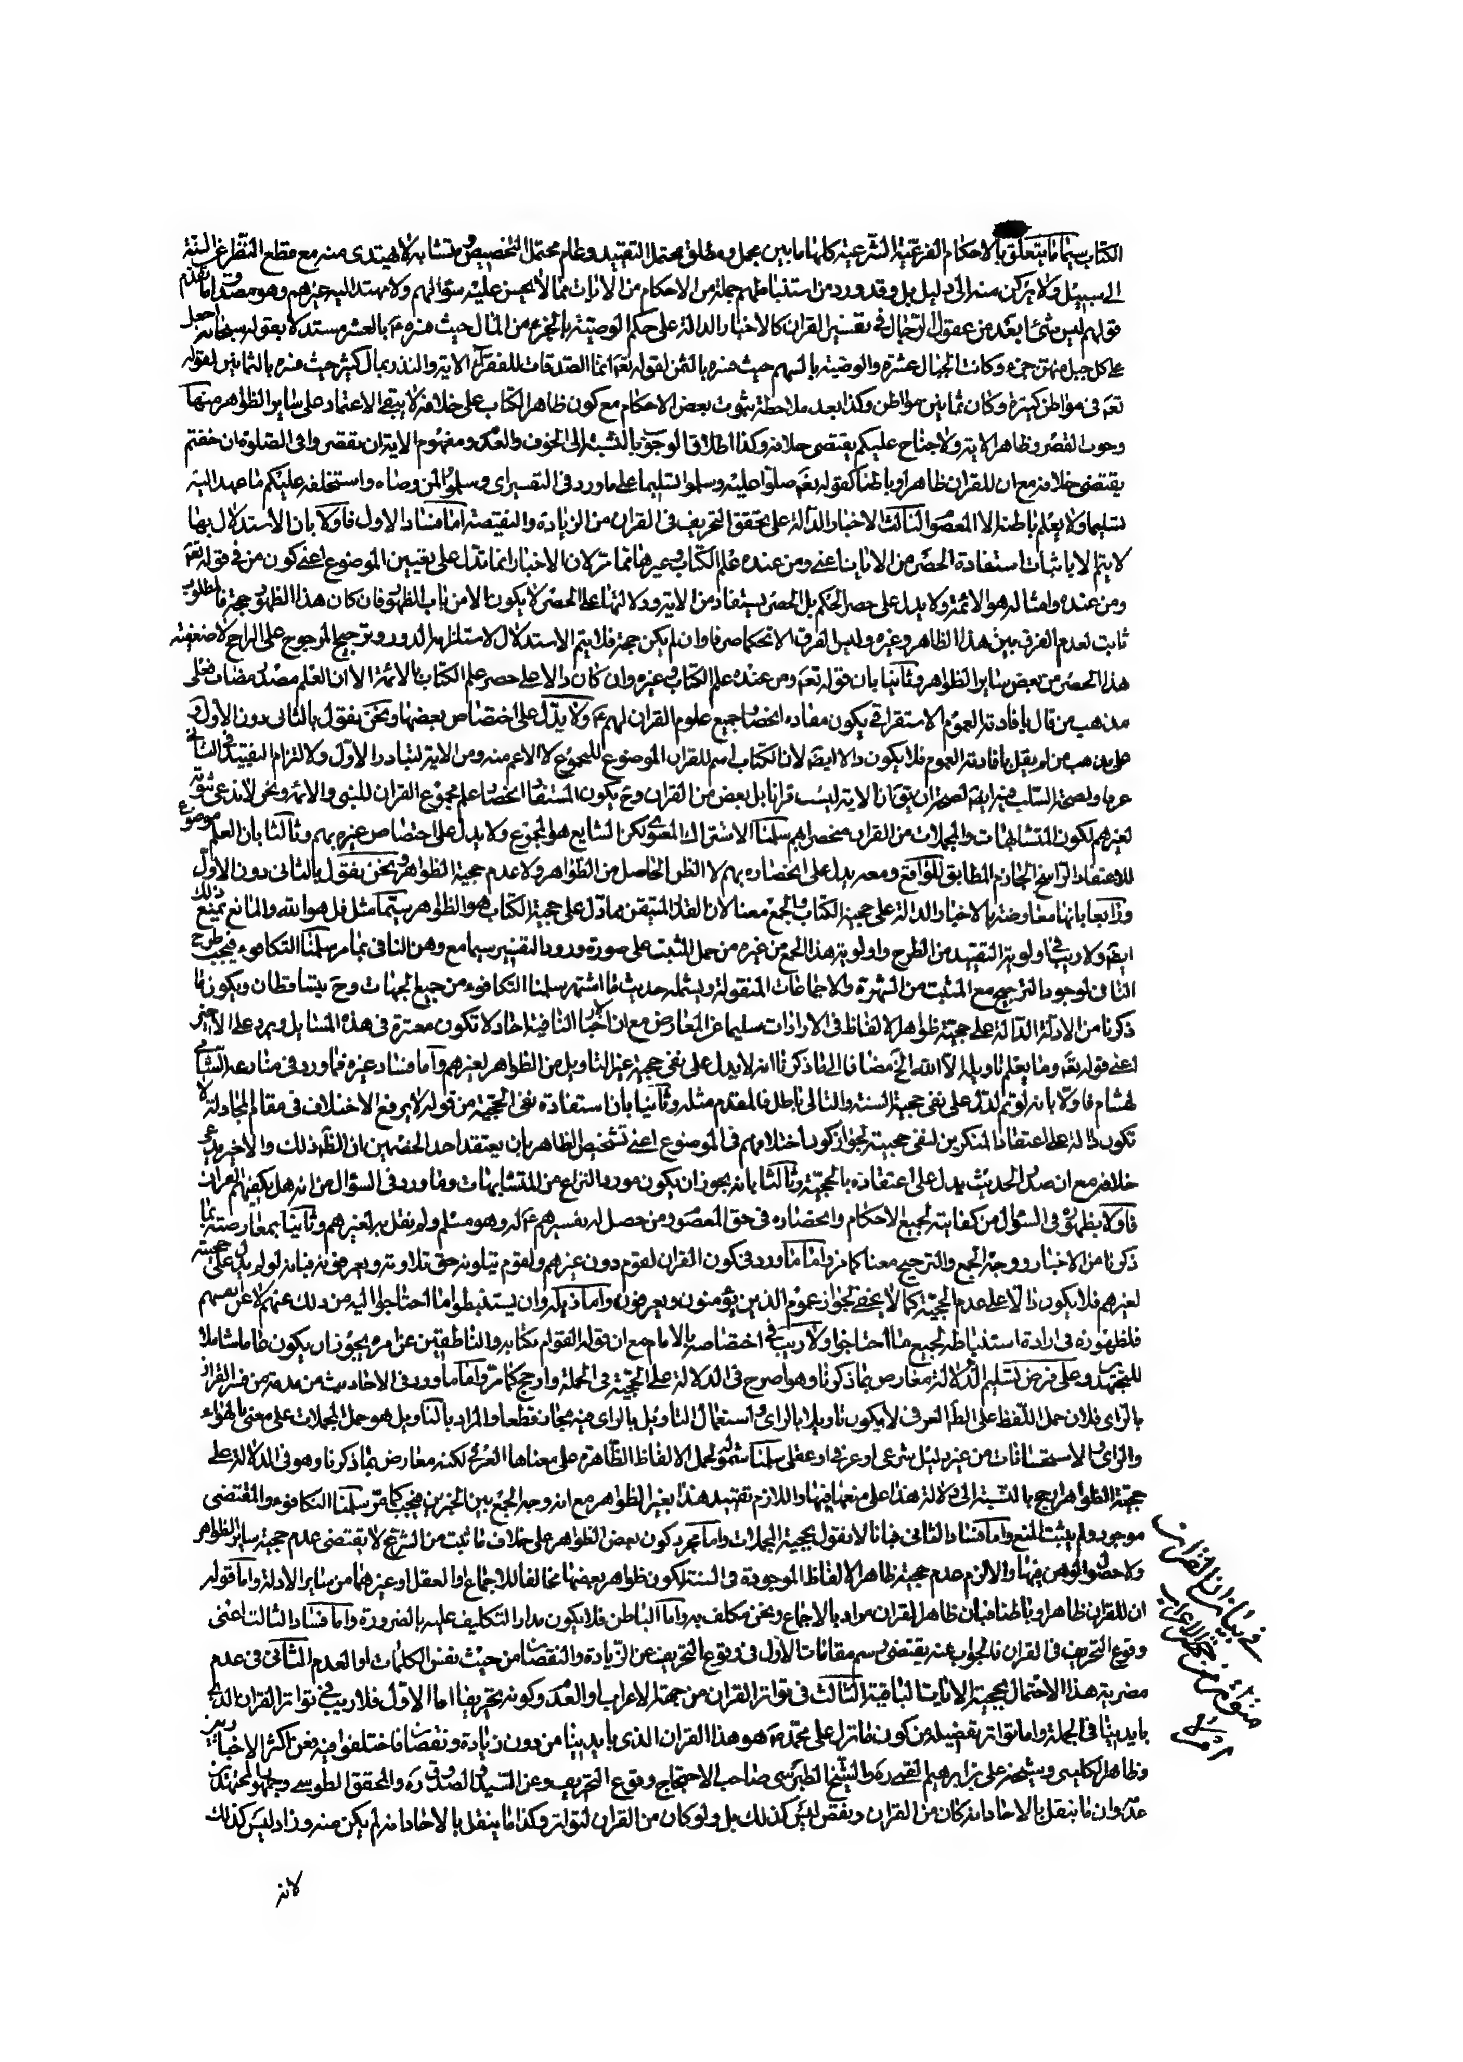 الكتاب سيما ما يتعلق بالاحكام الفرعية الشرعية كلها ما بين مجمل ومطلق محتمل التقييد وعام محتمل التخصيص ومتشابه لا يهتدى منه مع قطع النظر عن السنة
الى سبيل ولا يركن منه الى دليل بل وقد ورد من استنباطهم جملة من الاحكام من الايات مما لا يحسن عليه سؤالهم ولا يهتد اليه غيرهم وهو مصداق ما تقدم
قولهم ليس شئ ابعد من عقول الرجال في تفسير القران كالاخبار الدالة على حكم الوصية بالجزء من المال حيث فسره ع بالعشر مستدلا بقوله سبحانه اجعل
على كل جبل منهن جزء وكانت الجبال عشرة والوصية بالسهم حيث فسره بالثمن لقوله تعه انما الصدقات للفقراء الاية والنذر بمال كثير حيث فسره بالثمانين لقوله
تعه في مواطن كثيرة وكان ثمانين مواطن وكذا بعد ملاحظة ثبوت بعض الاحكام مع كون ظاهر الكتاب على خلافه لا يبقى الاعتماد على ساير الظواهر منها
وجوب القصر وظاهر الاية ولا جناح عليكم يقتضى خلافه وكذا اطلاق الوجوب بالنسبة الى الخوف والعدم ومفهوم الاية ان تقصروا في الصلوة ان خفتم
يقتضى خلافه مع ان للقران ظاهرا وباطنا كقوله تعه صلوا عليه وسلموا تسليما على ما ورد في التفسير اى وسلموا لمن وصاه واستخلفه عليكم ما عهد اليه
تسليما ولا يعلم باطنه الا المعصوم الثالث الاخبار الدالة على تحقق التحريف في القران من الزيادة والنقيصة اما فساد الاول فاولا بان الاستدلال بها
لا يتم الا باثبات استفادة الحصر من الايات اعنى ومن عنده علم الكتاب وغيرها مما مر لان الاخبار انما تدل على تعيين الموضوع اعنى كون من في قوله تعه
ومن عنده وامثاله هو الائمة ولا يدل على حصر الحكم بل الحصر يستفاد من الاية ودلالتها على الحصر لا يكون الا من باب الظهور فان كان هذا الظهور حجة فالمطلوب
ثابت لعدم الفرق بين هذا الظاهر وغيره وليس الفرق الا تحكما صرفا وان لم يكن حجة فلا يتم الاستدلال لاستلزامه الدور وترجيح المرجوح على الراجح لاضعفية
هذا الحصر من بعض ساير الظواهر وثانيا بان قوله تعه ومن عنده علم الكتاب وغيره وان كان دالا على حصر علم الكتاب بالائمة الا ان العلم مصدر مضاف فعلى
مذهب من قال بافادته العموم الاستغراقى يكون مفاده انحصار جميع علوم القران لهم ع ولا يدل على اختصاص بعضها ونحن نقول بالثانى دون الاول
على مذهب من لم يقل بافادته العموم فلا يكون دالا ايضا لان الكتاب اسم للقران الموضوع للمجموع لا الاعم منه ومن الاية لتبادر الاول ولالتزام التقييد في الثانى
عرفا ولصحة السلب فيه ايضا لصحة ان يقال الاية ليست قرانا بل بعض من القران وح يكون المستفاد انحصار علم مجموع القران للنبى والائمة ونحن لا ندعى ثبوته
لغيرهم لكون المتشابهات والمجملات من القران منحصرا بهم سلمنا الاشتراك المعنوى لكن الشايع هو المجموع ولا يدل على اختصاص غيره بهم وثالثا بان العلم موضوع
للاعتقاد الراسخ الجازم المطابق للواقع ومعه يدل على انحصاره بهم لا الظن الحاصل من الظواهر ولا عدم حجية الظواهر ونحن نقول بالثانى دون الاول
ورابعا بانها معارضة بالاخبار الدالة على حجية الكتاب والجمع معنا لان القدر المتيقن مما دل على حجية الكتاب هو الظواهر سيما مثل قل هو الله والمانع يمنع ذلك
ايضا ولا ريب في اولوية التقييد من الطرح واولوية هذا الجمع من غيره من حمل المثبت على صورة ورود التفسير سيما مع وهن النافى بما مر سلمنا التكافوء فيجب طرح
النافى لوجود الترجيح مع المثبت من الشهرة والاجماعات المنقولة ويشمله حديث ما اشتهر سلمنا التكافوء من جميع الجهات وح يتساقطان ويكون ما
ذكرنا من الادلة الدالة على حجية ظواهر الالفاظ في الارادات سليما عن المعارض مع ان الاخبار النافية احاد لا تكون معتبرة في هذه المسايل ويرد على الاخير
اعنى قوله تعه وما يعلم تاويله الا الله الخ مضافا الى ما ذكرنا انه لا يدل على نفى حجية غير التاويل من الظواهر لغيرهم واما فساد غيره فما ورد في مناظرة الشامى
لهشام فاولا بانه لو تم لدل على نفى حجية السنة والتالى باطل فالمقدم مثله وثانيا بان استفادة نفى الحجية من قوله لا يرفع الاختلاف في مقام المجادلة لا
تكون دالة على اعتقاد المنكرين لنفى حجيته لجواز كون اختلافهم في الموضوع اعنى تشخيص الظاهر بان يعتقد احد الخصمين ان الظاهر ذلك والاخر يدعى
خلافه مع ان صدر الحديث يدل على اعتقاده بالحجية وثالثا بانه يجوز ان يكون مورد النزاع من المتشابهات وما ورد في السؤال من انه هل يكفيهم القران
فاولا بظهوره في السؤال من كفايته لجميع الاحكام وانحصاره في حق المعصوم ومن حصل له تفسيرهم ع له وهو مسلم ولم نقل به لغيرهم وثانيا بمعارضته بما
ذكرنا من الاخبار ووجه الجمع والترجيح معنا كما مر واما ما ورد في كون القران لقوم دون غيرهم ولقوم يتلونه حق تلاوته ويعرفونه فبانه لو لم يدل على حجيته
لغيرهم فلا يكون دالا على عدم الحجية كما لا يخفى لجواز عموم الذين يؤمنون ويعرفون واما ذيله وان يستنبطوا ما احتاجوا اليه من ذلك عنهم لا عن انفسهم
فلظهوره في ارادة استنباطه لجميع ما احتاجوا ولا ريب في اختصاصه بالامام مع ان قوله القوام بكتابه والناطقين عن امره يجوز ان يكون عاما شاملا
للمجتهد وعلى فرض تسليم الدلالة معارض بما ذكرنا وهو اصرح في الدلالة على الحجية في الجملة وارجح كما مر واما ما ورد في الاحاديث من مذمة من فسر القران
بالراى فلان حمل اللفظ على الظاهر العرفى لا يكون تاويلا بالراى واستعمال التاويل بالراى فيه مجاز قطعا والمراد بالتاويل هو حمل المجملات على معنى بالهواء
والراى بالاستحسانات من غير دليل شرعى او عرفى او عقلى سلمنا شموله لحمل الالفاظ الظاهرة على معناها العرفى لكنه معارض بما ذكرنا وهو في الدلالة على
حجية الظواهر ارجح بالنسبة الى دلالة هذا على منعها فيها واللازم تقييد هذا بغير الظواهر مع انه وجه الجمع بين الخبرين فيجب كما مر سلمنا التكافوء والمقتضى
موجود ولم يثبت المنع واما فساد الثانى فبانا لا نقول بحجية المجملات واما مجرد كون بعض الظواهر على خلاف ما ثبت من الشرع لا يقتضى عدم حجية ساير الظواهر
ولا حصول الوهن فيها والا لزم عدم حجية ظاهر الالفاظ الموجودة في السنة لكون ظواهر بعضها مخالفا للاجماع او العقل او غيرهما من ساير الادلة واما قوله
ان للقران ظاهرا وباطنا فبان ظاهر القران مراد بالاجماع ونحن مكلف به واما الباطن فلا يكون مدار التكليف عليه بالضرورة واما فساد الثالث اعنى
وقوع التحريف في القران فالجواب عنه يقتضى رسم مقامات الاول في وقوع التحريف عن الزيادة والنقصان من حيث نفس الكلمات او العدم الثانى في عدم
مضرية هذا الاحتمال بحجية الايات الباقية الثالث في تواتر القران من جهة الاعراب والعدم وكونه تحريفا اما الاول فلا ريب في تواتر القران الذى
بايدينا في الجملة واما تواتر تفصيله من كون ما نزل على محمد ص هو هذا القران الذى بايدينا من دون زيادة ونقصان فاختلفوا فيه فعن اكثر الاخباريين
وظاهر الكلينى وشيخه على بن ابرهيم القمى ره والشيخ الطبرسى صاحب الاحتجاج وقوع التحريف وعن السيد والصدوق ره والمحقق الطوسى وجمهور المجتهدين
عدمه وان ما ينقل بالاحاد انه كان من القران ونقص ليس كذلك بل ولو كان من القران لتواتر وكذا ما ينقل بالاحاد انه لم يكن منه وزاد ليس كذلك
في بيان ان القران
منزه من
ام لا
لانه